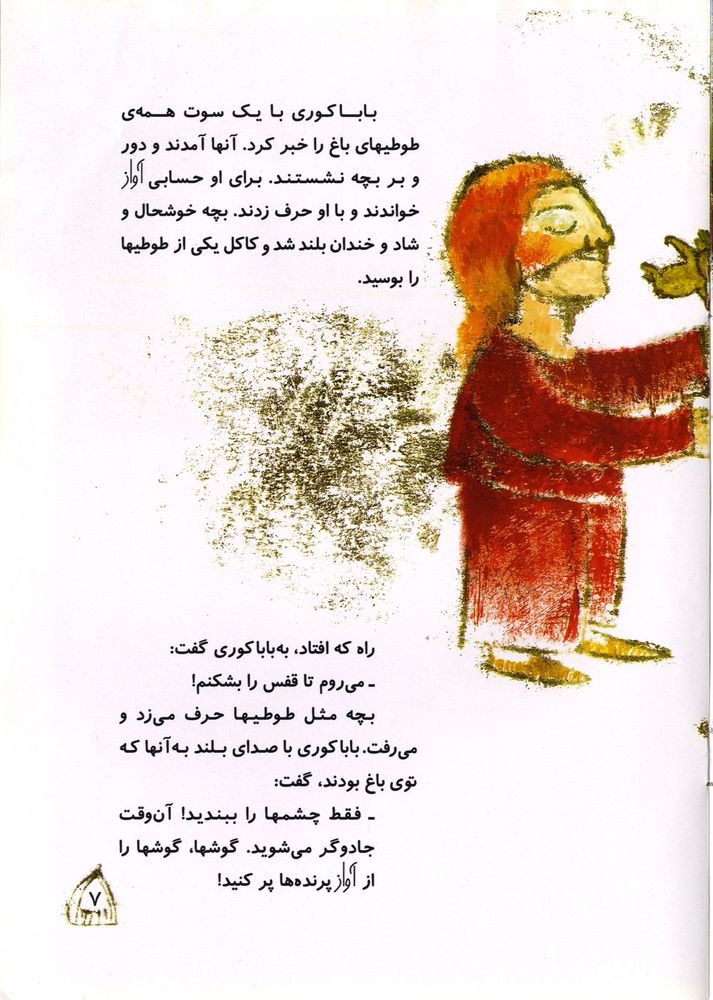 باباکوری با یک سوت همه‌ی
طوطیهای باغ را خبر کرد. آنها آمدند و دور
و بر بچه نشستند. برای او حسابی آواز
خواندند و با او حرف زدند. بچه خوشحال و
شاد و خندان بلند شد و کاکل یکی از طوطیها
را بوسید.
راه که افتاد، به‌باباکوری گفت:
ـ می‌روم تا قفس را بشکنم!
بچه مثل طوطیها حرف می‌زد و
می‌رفت. باباکوری با صدای بلند به‌آنها که
توی باغ بودند، گفت:
ـ فقط چشمها را ببندید! آن‌وقت
جادوگر می‌شوید. گوشها، گوشها را
از آواز پرنده‌ها پر کنید!
۷